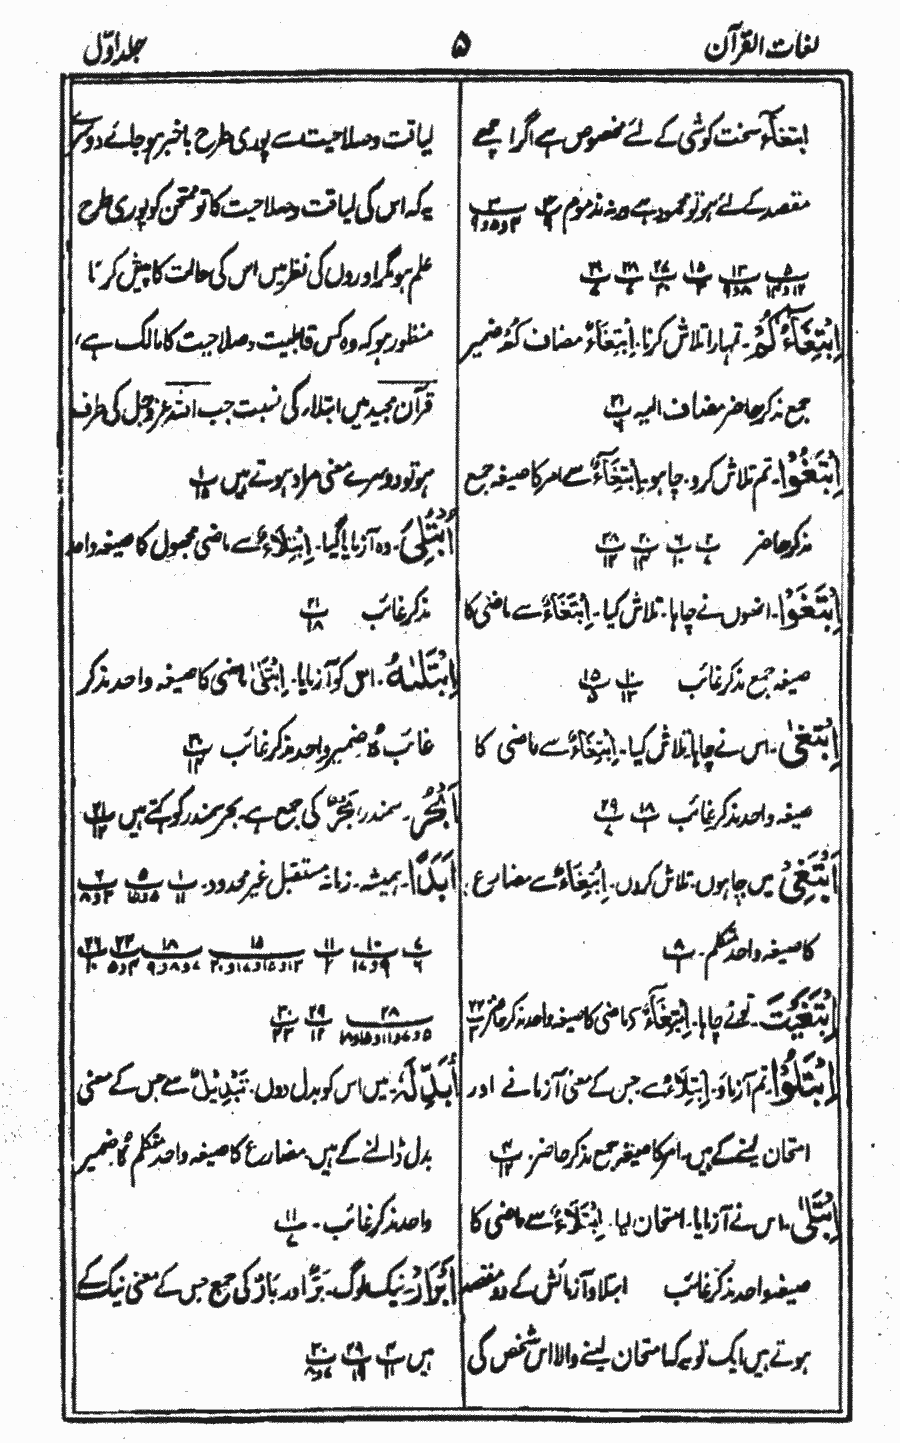 لغات القرآن
۵
جلد اوّل
ابتغآء سخت کوشی کے لئے مخصوص ہے اگر اچھے
مقصد کے لئے ہو تو محمود ہے ورنہ مذموم
اِبْتِغَآءُ کُمْ۔ تمہارا تلاش کرنا۔ اِبْتِغَاءُ مضاف کُمْ ضمیر
جمع مذکر حاضر مضاف الیہ
اِبْتَغُوْا۔ تم تلاش کرو۔ چاہو۔ اِبْتِغَآءٌ سے امر کا صیغہ جمع
مذکر حاضر
اِبْتَغَوْا۔ انھوں نے چاہا۔ تلاش کیا۔ اِبْتِغَاءٌ سے ماضی کا
صیغہ جمع مذکر غائب
اِبْتَغٰی۔ اس نے چاہا۔ تلاش کیا۔ اِبْتِغَاءٌ سے ماضی کا
صیغہ واحد مذکر غائب
اَبْتَغِیْ میں چاہوں۔ تلاش کروں۔ اِبْتِغَاءٌ سے مضارع
کا صیغہ واحد متکلم۔
اِبْتَغَیْتَ۔ تونے چاہا۔ اِبْتِغَآءٌ سے ماضی کا صیغہ واحد مذکر حاضر
اِبْتَلُوْا۔ تم آزماؤ۔ اِبْتِلَاءٌ سے جس کے معنی آزمانے اور
امتحان لینے کے ہیں۔ امر کا صیغہ جمع مذکر حاضر۔
اِبْتَلٰی۔ اس نے آزمایا۔ امتحان لیا۔ اِبْتِلَاءٌ سے ماضی کا
صیغہ واحد مذکر غائب ابتلا و آزمائش کے دو مقصد
ہوتے ہیں ایک تو یہ کہ امتحان لینے والا اس شخص کی
لیاقت و صلاحیت سے پوری طرح باخبر ہو جائے دوسرے
یہ کہ اس کی لیاقت و صلاحیت کا تو ممتحن کو پوری طرح
علم ہو مگر اوروں کی نظر میں اس کی حالت کا پیش کرنا
منظور ہو کہ وہ کس قابلیت و صلاحیت کا مالک ہے،
قرآن مجید میں ابتلاء کی نسبت جب اللہ عزوجل کی طرف
ہو تو دوسرے معنی مراد ہوتے ہیں
اُبْتُلِیَ۔ وہ آزمایا گیا۔ اِبْتِلَاءٌ سے ماضی مجہول کا صیغہ واحد
مذکر غائب
اِبْتَلٰىہُ۔ اس کو آزمایا۔ اِبْتَلٰی ماضی کا صیغہ واحد مذکر
غائب ہُ ضمیر واحد مذکر غائب
اَبْحُرٍ۔ سمندر، بَحْرٌ کی جمع ہے۔ بحر سمندر کو کہتے ہیں
اَبَدًا۔ ہمیشہ۔ زمانہ مستقبل غیر محدود۔
اُبَدِّلَہٗ۔ میں اس کو بدل دوں۔ تَبْدِیْلٌ سے جس کے معنی
بدل ڈالنے کے ہیں۔ مضارع کا صیغہ واحد متکلم ہُ ضمیر
واحد مذکر غائب۔
اَبْرَارَ۔ نیک لوگ۔ بَرٌّ اور بَارٌّ کی جمع جس کے معنی نیک کے
ہیں